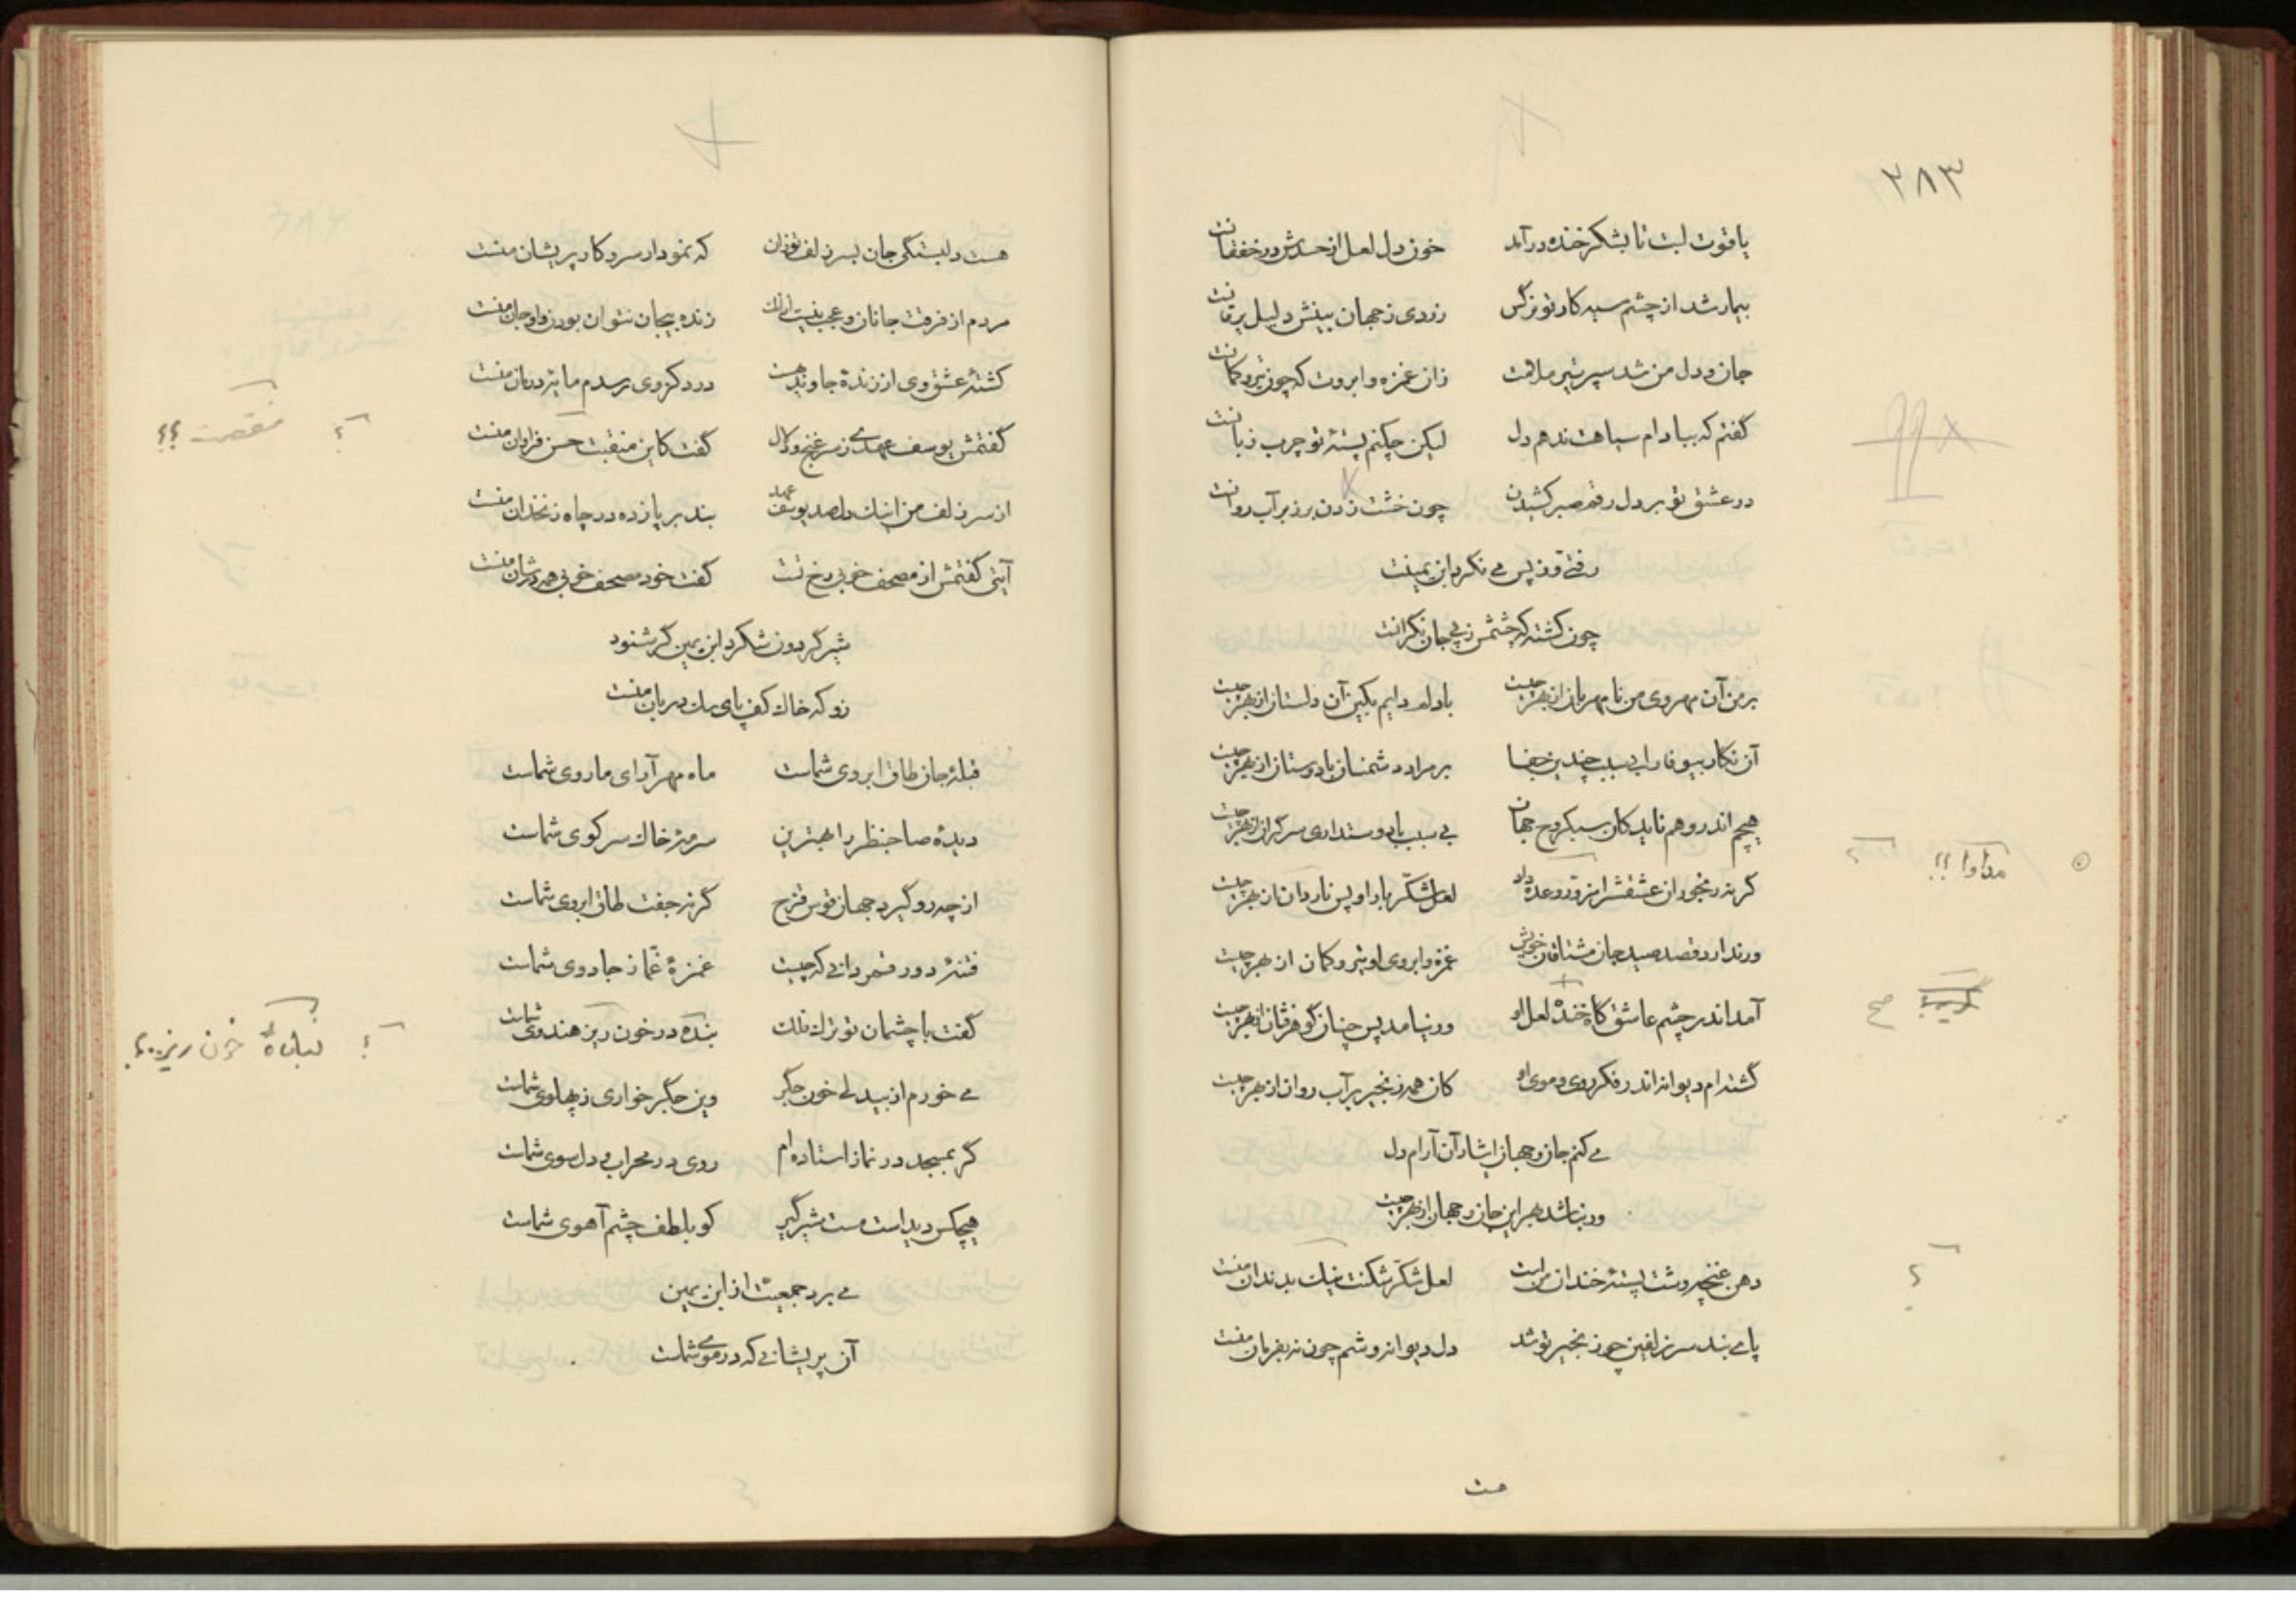 ۳۸۳
یاقوت لبت تا بشکر خنده درآمد خون دل لعل از حسدش در خفقانست
بیمار شد از چشم سیه کار تو نرگس زردی ز جهان بینش دلیل یرقانست
جان و دل من شد سپر تیر ملامت زان غمزه و ابروت که چون تیر و کمانست
گفتم که ببادام سیاهت ندهم دل لیکن چکنم پستهٔ تو چرب زبانست
در عشق تو بر دل رقم صبر کشیدن چون خشت زدن بر زبر آب روانست
رفتی و ز پس می نگرد ابن یمینت
چون کشته که چشمش ز پی جان نگرانست
بر من آن مهروی من نا مهربان از بهر چیست با دلم دایم بکین آن دلستان از بهر چیست
آن نگار بیوفا را بی سبب چندین جفا بر مراد دشمنان با دوستان از بهر چیست
هیچم اندر وهم ناید کان سبکروح جهان بی سبب با دوستداری سرگران از بهر چیست
گر نه رنجوران عشقش را مزور وعده داد لعل شکر بار او پس ناردان از بهر چیست
ور ندارد قصد صید جان مشتاقان خویش غمزه و ابروی او تیر و کمان از بهر چیست
آمد اندر چشم عاشق گاه خندهٔ لعل او ور نیامد پس چنان گوهر فشان از بهر چیست
گشته‌ام دیوانه اندر فکر روی و موی او کان همه زنجیر بر آب روان از بهر چیست
می کنم جان و جهان ایثار آن آرام دل
ور نباشد بهر این جان و جهان از بهر چیست
دهن غنچه‌وشت پستهٔ خندان منست لعل شکر شکنت نیک بدندان منست
پای بند سر زلفین چو زنجیر تو شد دل دیوانه وشم چون نه بفرمان منست
مداوا !! ؟
صح
؟
هست
هست دلبستگی جان بسر زلف تو زان که نمودار سر و کار پریشان منست
مردم از فرقت جانان و عجب نیست از آنک زنده بیجان نتوان بودن و او جان منست
کشتهٔ عشق وی ار زندهٔ جاوید هست درد کز وی رسدم مایهٔ درمان منست
گفتمش یوسف عهدی ز سر غنج و دلال گفت کاین منقبت حسن فراوان منست
از سر زلف من اینک دل صد یوسف عهد بند بر پا زده در چاه زنخدان منست
آیتی گفتمش از مصحف خوبی رخ تست گفت خود مصحف خوبی همه در شان منست
شیر گردون شکرد ابن یمین گر شنود
زو که خاک کف پای سگ دربان منست
قبلهٔ جان طاق ابروی شماست ماه مهر آرای ما روی شماست
دیدهٔ صاحبنظر را بهترین سرمهٔ خاک سر کوی شماست
از چه رو گیرد جهان قوس قزح گرنه جفت طاق ابروی شماست
فتنهٔ دور قمر دانی که چیست غمزهٔ غماز جادوی شماست
گفت با چشمان تو ترک فلک بنده در خون ریز هندوی شماست
می خورم از بیدلی خون جگر وین جگر خواری ز پهلوی شماست
گر بمسجد در نماز استاده‌ام روی در محراب و دل سوی شماست
هیچکس دیداست مست شیرگیر کو بلطف چشم آهوی شماست
می برد جمعیت از ابن یمین
آن پریشانی که در موی شماست
؟ منقصت ؟؟
؟ خون ریز ..؟